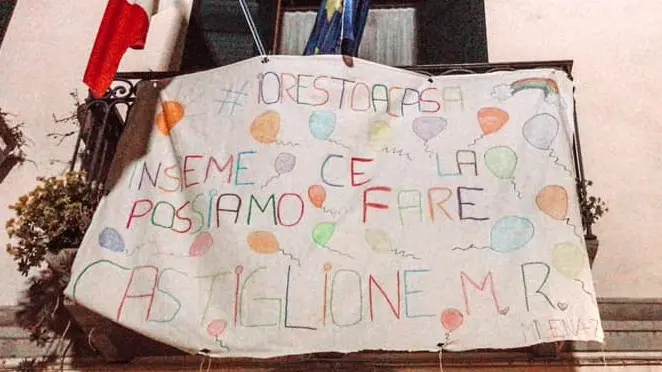 #IORESTOACASA
INSEME CE LA
POSSIAMO FARE
CASTIGLIONE.M.R.